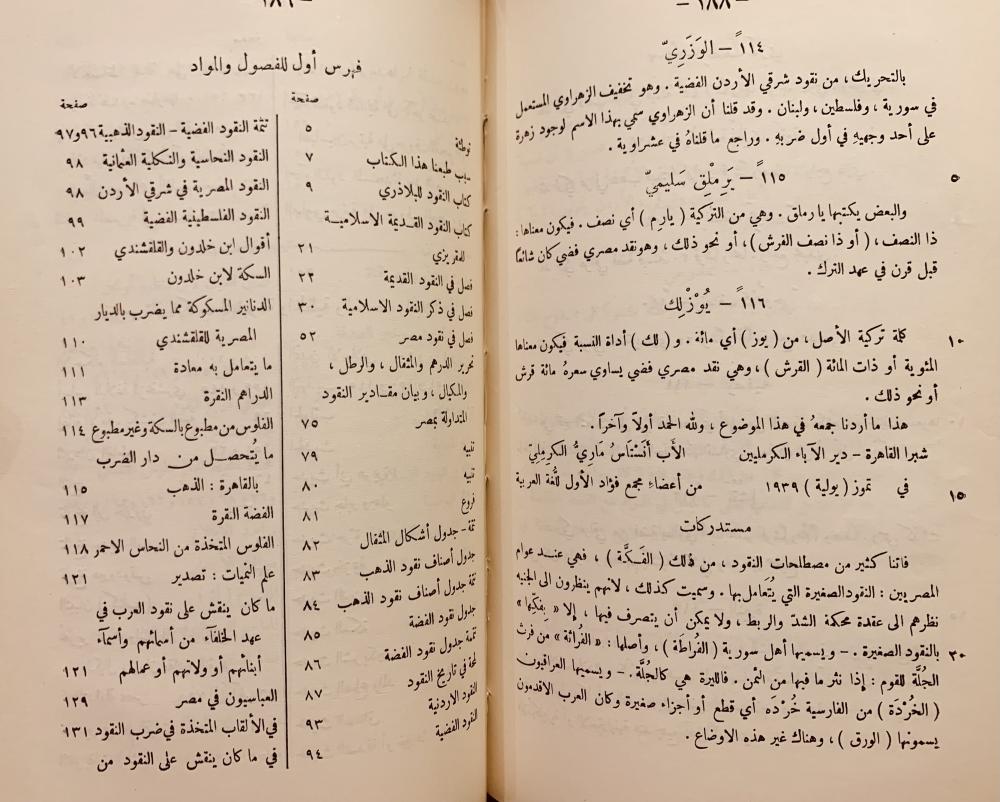 – ١٨٨ –
١١٤ً – الوَزَرِيّ
بالتحريك، من نقود شرقي الأردن الفضية. وهو تخفيف الزهراوي المستعمل
في سورية، وفلسطين، ولبنان. وقد قلنا أن الزهراوي سمي بهذا الاسم لوجود زهرة
على أحد وجهيهِ في أول ضربهِ. وراجع ما قلناهُ في عشراوية.
١١٥ً – يَرِمْلِق سَليميّ
٥
والبعض يكتبها يارملق. وهي من التركية (يارِم) أي نصف. فيكون معناها:
ذا النصف، (أو ذا نصف القرش)، أو نحو ذلك، وهو نقد مصري فضي كان شائعاً
قبل قرن في عهد الترك.
١١٦ً – يُوزْلِك
كلمة تركية الأصل، من (يوز) أي مائة. و(لك) أداة النسبة فيكون معناها
١٠
المئوية أو ذات المائة (القرش)، وهي نقد مصري فضي يساوي سعرهُ مائة قرش
أو نحو ذلك.
هذا ما أردنا جمعهُ في هذا الموضوع، ولله الحمد أولاً وآخراً.
شبرا القاهرة – دير الآباء الكرمليين الأَب أَنَسْتَاس مَاريُّ الكرمِليّ
في تموز (يولية) ١٩٣٩ من أعضاءِ مجمع فؤاد الأول للُّغة العربية
١٥
مستدركات
فاتنا كثير من مصطلحات النقود، من ذلك (الفَكَّة)، فهي عنـد عوام
المصريين: النقود الصغيرة التي يُتَعامل بها. وسميت كذلك، لانهم ينظرون الى الجنيه
نظرهم الى عقدة محكمة الشدّ والربط، ولا يمكن أن يتصرف فيها، إلا «بِفكِّها»
بالنقود الصغيرة. – ويسميها أهل سورية (الفُراطَة)، وأصلها: «الفُرائة» من فرَث
٣٠
الجُلَّة للقوم: إذا نثر ما فيها من التمن. فالليرة هي كالجُلَّة. – ويسميها العراقيون
(الخُرْدَة) من الفارسية خُرْدَه أي قطع أو أجزاء صغيرة وكان العرب الاقدمون
يسمونها (الورق)، وهناك غير هذه الاوضاع.
– ١٨٩ –
فهرس أول للفصول والمواد
صفحة
توطئة ٥
سبب طبعنا هذا الكتاب ٧
كتاب النقود للبلاذري ٩
كتاب النقود القـديمة الاسلاميـة
للمقريزي ٢١
فصل في النقود القديمة ٢٢
فصل في ذكر النقود الاسلامية ٣٠
فصل في نقود مصر ٥٢
تحرير الدرهم والمثقال، والرطل،
والمكيال، وبيان مقـادير النقود
المتداولة بمصر ٧٥
تنبيه ٧٩
تنبيه ٨٠
فروع ٨١
تتمة - جدول أشكال المثقال ٨٢
جدول أصناف نقود الذهب ٨٣
تتمة جدول أصناف نقود الذهب ٨٤
جدول نقود الفضة ٨٥
تتمة جدول نقود الفضة ٨٦
لمحة في تاريخ النقود ٨٧
النقود الاردنية ٩٣
النقود الفضية ٩٤
صفحة
تتمة النقود الفضية – النقود الذهبية ٩٦ و٩٧
النقود النحاسية والنكلية العثمانية ٩٨
النقود المصرية في شرقي الأردن ٩٨
النقود الفلسطينية الفضية ٩٩
أقوال ابن خلدون والقلقشندي ١٠٢
السكة لابن خلدون ١٠٣
الدنانير المسكوكة مما يضرب بالديار
المصرية للقلقشندي ١١٠
ما يتعامل به معادة ١١١
الدراهم النقرة ١١٣
الفلوس من مطبوع بالسكة وغير مطبوع ١١٤
ما يُتحصـل من دار الضرب
بالقاهرة: الذهب ١١٥
الفضة النقرة ١١٧
الفلوس المتخذة من النحاس الاحمر ١١٨
علم النميات: تصدير ١٢١
ما كان ينقش على نقود العرب في
عهد الخلفآء من أسمائهم وأسمآء
أبنائهم أو ولاتهم أو عمالهم ١٢١
العباسيون في مصر ١٢٩
في الألقاب المتخذة في ضرب النقود ١٣١
في ما كان ينقش على النقود من